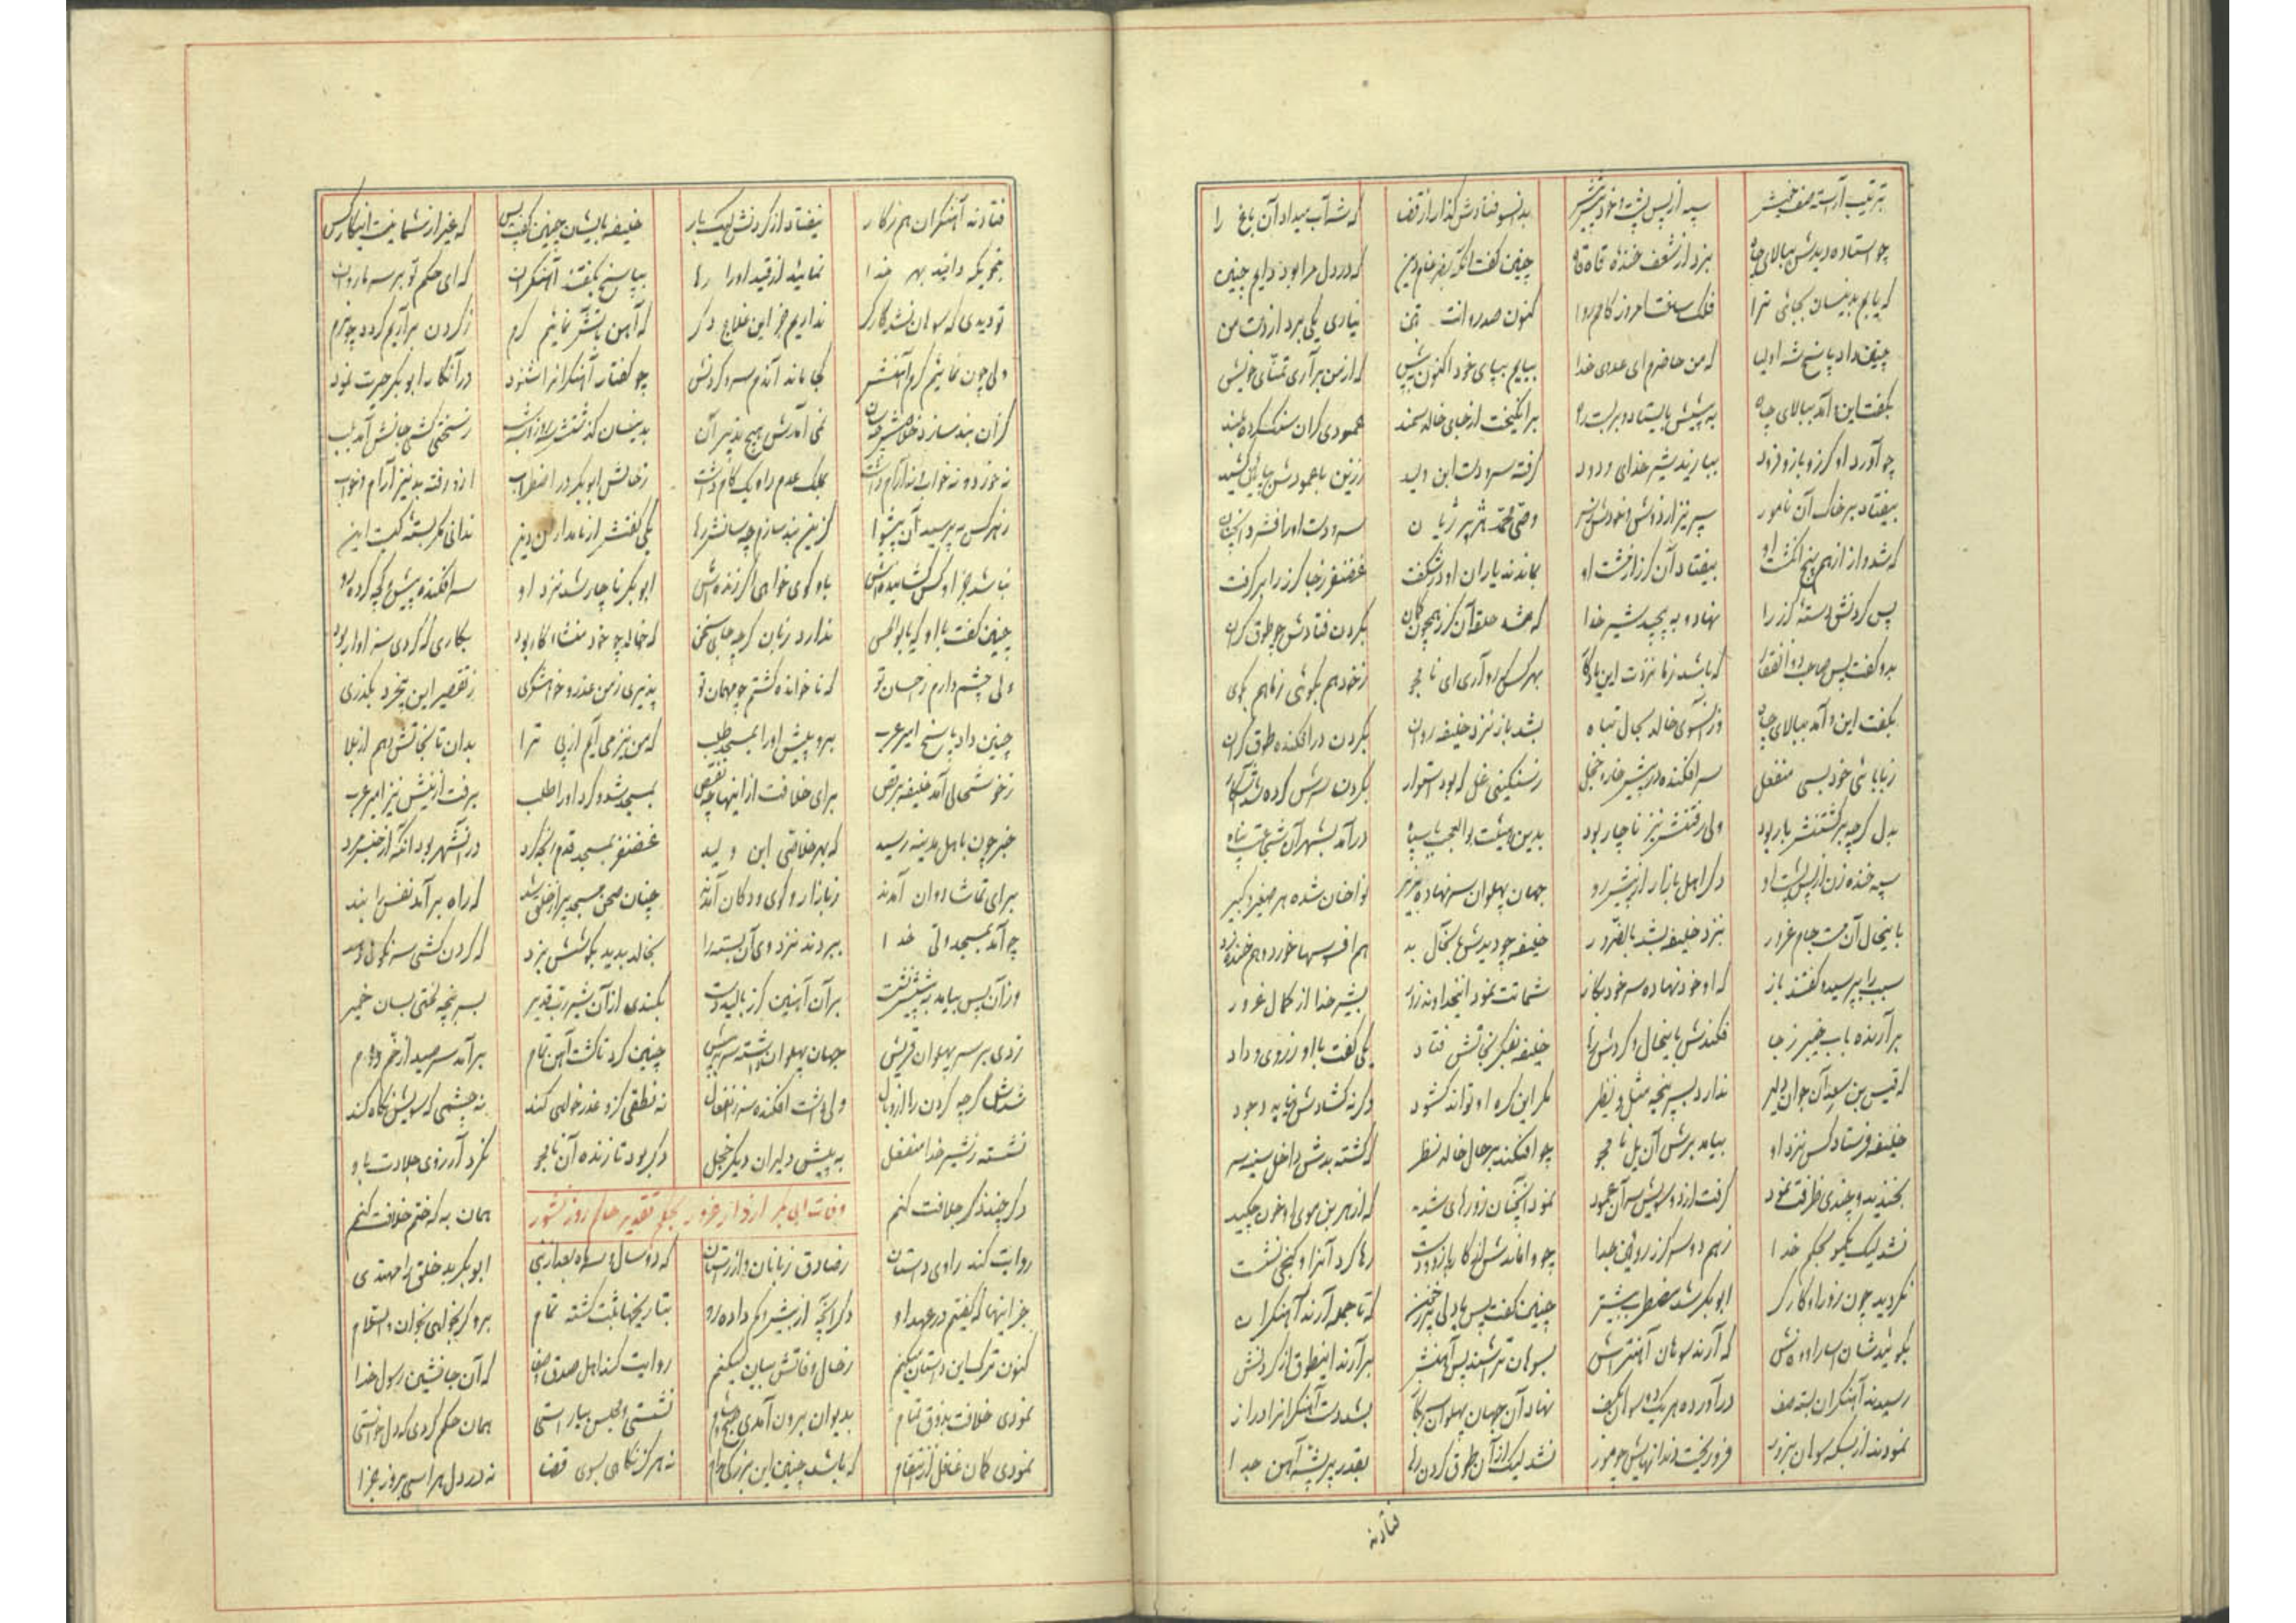 بترتیب آراسته صف خویش سپه از پس پشت و خود پیشتر بدانسو فتادش گذار از قضا که شه آب میداد آن باغ را
چو استاده دیدش ببالای چاه بزد از شعف خنده قاه قاه چنین گفت که در دل مرا بود دایم چنین
که یابم بدینسان بجائی ترا فلک ساخت امروز کامم روا کنون صد روانت ز تن نیاری یکی برد از دست من
چنین داد پاسخ شه اولیا که من حاضرم ای عدوی خدا بیایم بپای خود اکنون به پیش که از من برآری تمنای خویش
بگفت این و آمد ببالای چاه به پیشش بایستاد و بربست راه برانگیخت از جای خالد سمند عمودی گران سنگ کرده بلند
چو آورد او گرز و بازو فرود بیازید شیر خدای ودود گرفته سر و دست ابن ولید ز زین با عمودش بپائین کشید
بیفتاد بر خاک آن نامور سپر نیز از دوش و خودش ز سر وصی محمد هژبر ژیان سر و دست او را فشرد آنچنان
که شد واز از هم پنج انگشت او بیفتاد آن گرز از مشت او بماندند یاران او در شگفت غضنفر ز جا گرز را برگرفت
پس گردنش دسته گرز را نهاد و به پیچید شیر خدا که شد حلقه آن گرز همچون کمان بگردن فتادش چو طوق گران
بدو گفت پس صاحب ذوالفقار که باشد ز ما نزدت این یادگار بهر کس که رو آری ای نامجو ز خود هم بگوئی ز ما هم بگوی
بگفت این و آمد ببالای چاه وز آنسوی خالد بحال تباه بشد باز نزد خلیفه روان بگردن درافکنده طوق گران
ز بابائی خود بسی منفعل سرافکنده در پیش خوار و خجل ز سنگینی غل که بود استوار بگردن سرش کرده شد آشکار
بدل گرچه برگشتنش بار بود ولی رفتنش نیز ناچار بود بدین هیئت بوالعجب با سپاه درآمد بشهر آن شجاعت پناه
سپه خنده زن از پس پشت او دگر اهل بازار از پیش رو جهان پهلوان سر نهاده بزیر نواخوان شده هر صغیر و کبیر
باینحال آن مست جام غرور بنزد خلیفه بشد بالضرور خلیفه چو دیدش بحال بد هم افسوسها خورد و هم خنده زد
سبب را بپرسید و گفتند باز که او خود نهاده سر خود بگاز شماتت نمود بشیر خدا از کمال غرور
برآرنده باب خیبر ز جا فکندش باینحال و کردش رها خلیفه بفکر نجاتش فتاد یکی گفت با او ز روی وداد
که قیس بن سعد آن جوان دلیر ندارد بسرپنجه مثل و نظیر مگر این گره او تواند گشود وگرنه گشادش نیاید وجود
خلیفه فرستاد کس نزد او بیامد برش آن یل نامجو چو افکند بر حال خالد نظر که گشته بدش داخل سینه سر
بخندید و چندی ظرافت نمود گرفت از دو سویش سر آن عمود نمود آنچنان زورهای شدید که از هر بن موی او خون چکید
نشد لیک یکمو بحکم خدا ز هم دو سر گرز روئین جدا چو وامانده شد از کار بازو و دست رها کرد آنرا و کنجی نشست
نگردید چون زور او کارگر ابوبکر شد مضطرب بیشتر چنین گفت پس که تا جمله آرند آهنگران
بگوئیدشان که آرند سوهان آهن تراش بسوهان تراشند برآرند این طوق از گردنش
رسیدند آهنگران بسته صف درآورده هر یک دو سوهان بکف نهاد آن جهان پهلوان بشد دست آهنگرانرا دراز
نمودند از بسکه سوهان بزور فرو ریخت دندانهایش چو مور نشد لیک از آن طوق گردن رها بقدر پر پشه آهن جدا
فتادند
فتادند آهنگران هم ز کار نیفتاد از گردنش لیک بار خلیفه بایشان چنین گفت پس که غیر از شما نیست اینکار کس
بنحویکه دانید بهر خدا نمائید از قید او را رها بپاسخ بگفتند آهنگران که ای حکم تو بر سر ما روان
تو دیدی که سوهان نشد کارگر نداریم جز این علاج دگر که آهن بآتش نمائیم گرم ز گردن برآریم گردد چو نرم
ولی چون نمائیم گرم آهنش کجا ماند آندم سر و گردنش چو گفتار آهنگرانرا شنود در آنکار ابوبکر حیرت نمود
کز آن بند سازد خلاصش چسان نمی آمدش هیچ تدبیر آن بدینسان گذشتش ز سختی کشی جانش آمد بلب
نه خورد و نه خواب و نه آرام داشت بملک عدم راه یک گام داشت ز حالش ابوبکر در اضطراب ازو رفته بد نیز آرام و خواب
ز هر کس بپرسید آن پیشوا کزین بند سازم چسانش رها یکی گفتش از نامداران دین ندانی مگر بسته کیست این
نباشد جز او کس گشاینده اش باو گوی خواهی اگر زنده اش ابوبکر ناچار شد نزد او سر افکنده پیش و گره کرده رو
چنین گفت با او که یا بوالحسن ندارد زبان گرچه جای سخن که خالد چو خود منشأ کار بود بکاری که کردی سزاوار بود
ولی چشم دارم ز احسان تو که ناخوانده گشتم چو مهمان تو پذیری ز من عذر و خواهشگری ز تقصیر این بیخرد بگذری
چنین داد پاسخ امیر عرب برو پیش او را بمسجد طلب که من نیز می آیم از پی ترا بدان تا نجاتش دهم از بلا
ز خوشحالی آمد خلیفه برقص برای خلافت از اینها چه نقص بمسجد شد و کرد او را طلب برفت از پیش نیز امیر عرب
خبر چون باهل مدینه رسید که بهر خلاصی ابن ولید غضنفر بمسجد قدم رنجه کرد در آنشهر بود آنکه از جنس مرد
برای تماشا روان آمدند ز بازار و کوی و دکان آمدند چنان صحن مسجد پر از خلق شد که راه برآمد نفس را ببند
چو آمد بمسجد ولی خدا ببردند نزد وی آن بسته را بخالد بدید که گردن کشی سرنگونی دهد
وز آن پس بیامد به پیشش نشست بر آن آهنین گرز بکندی از آن شیر رب قدیر بسرپنجه لختی بسان خمیر
زدی بر سر پهلوان قریش جهان پهلوان چنین کرد تا گشت آهن تمام برآمد سر صید از خم دام
شدش گرچه گردن رها از وبال ولی داشت افکنده سر ز انفعال نه نطقی کزو عذرخواهی کند نه چشمی که سویش نگاه کند
نشسته ز شیر خدا منفعل به پیش دلیران دیگر خجل دگر بود تا زنده آن نامجو نکرد آرزوی جلادت باو
دگر چند ذکر جلافت کنم همان به که ختم خلافت کنم
وفات ابی بکر از دار غرور بحکم تقدیر حاکم روز نشور
روایت کند راوی داستان ز صادق زبانان و از راستان که دو سال و سه ماه بعد از نبی ابوبکر بد خلق را مهتدی
جز اینها که گفتم در عهد او دگر آنچه از بیش و کم داده رو بتاریخها ثبت گشته تمام برو گر بخواهی بخوان والسلام
کنون ترک این داستان میکنم ز حال وفاتش بیان میکنم روایت کند اهل صدق و صفا که آن جانشین رسول خدا
نمودی خلافت بذوق تمام بدیوان برون آمدی صبح و شام نشستی و مجلس بیاراستی همان حکم کردی که دل خواستی
نمودی گمان غافل از انتقام که باشد چنین این بزرگی مدام نه هرگز نگاهی بسوی قضا نه در دل هراسی ز روز جزا